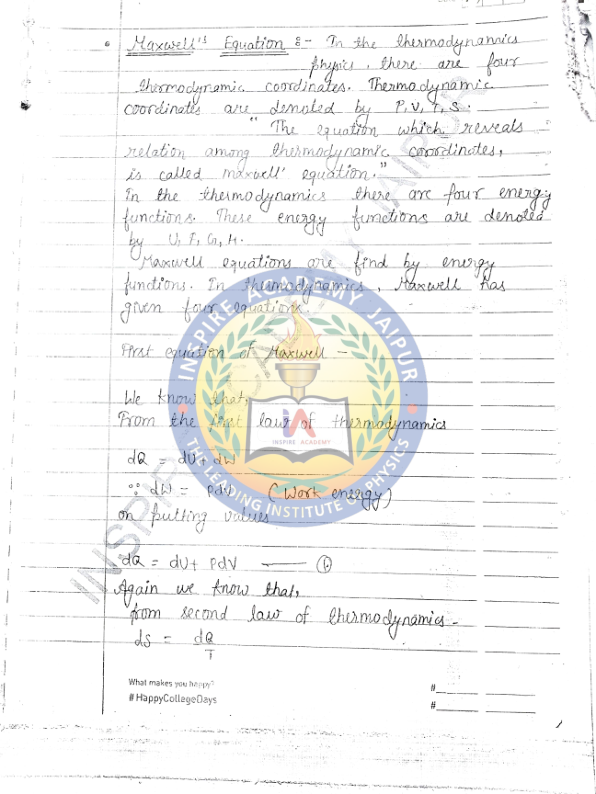 • Maxwell's Equation :- In the thermodynamics
physics, there are four
thermodynamic coordinates. Thermodynamic
coordinates are denoted by P, V, T, S.
"The equation which reveals
relation among thermodynamic coordinates,
is called maxwell' equation."
In the thermodynamics there are four energy
functions. These energy functions are denoted
by U, F, G, H.
Maxwell equations are find by energy
functions. In thermodynamics, Maxwell has
given four equations.
First equation of Maxwell -
We know that,
From the first law of thermodynamics
dQ = dU + dW
∵ dW = PdV (Work energy)
on putting values
dQ = dU + PdV —— ①
Again we know that,
from second law of thermodynamics -
dS = dQ
T
INSPIRE ACADEMY JAIPUR
IA
INSPIRE ACADEMY
THE LEADING INSTITUTE OF PHYSICS
What makes you happy?
#HappyCollegeDays
#
#